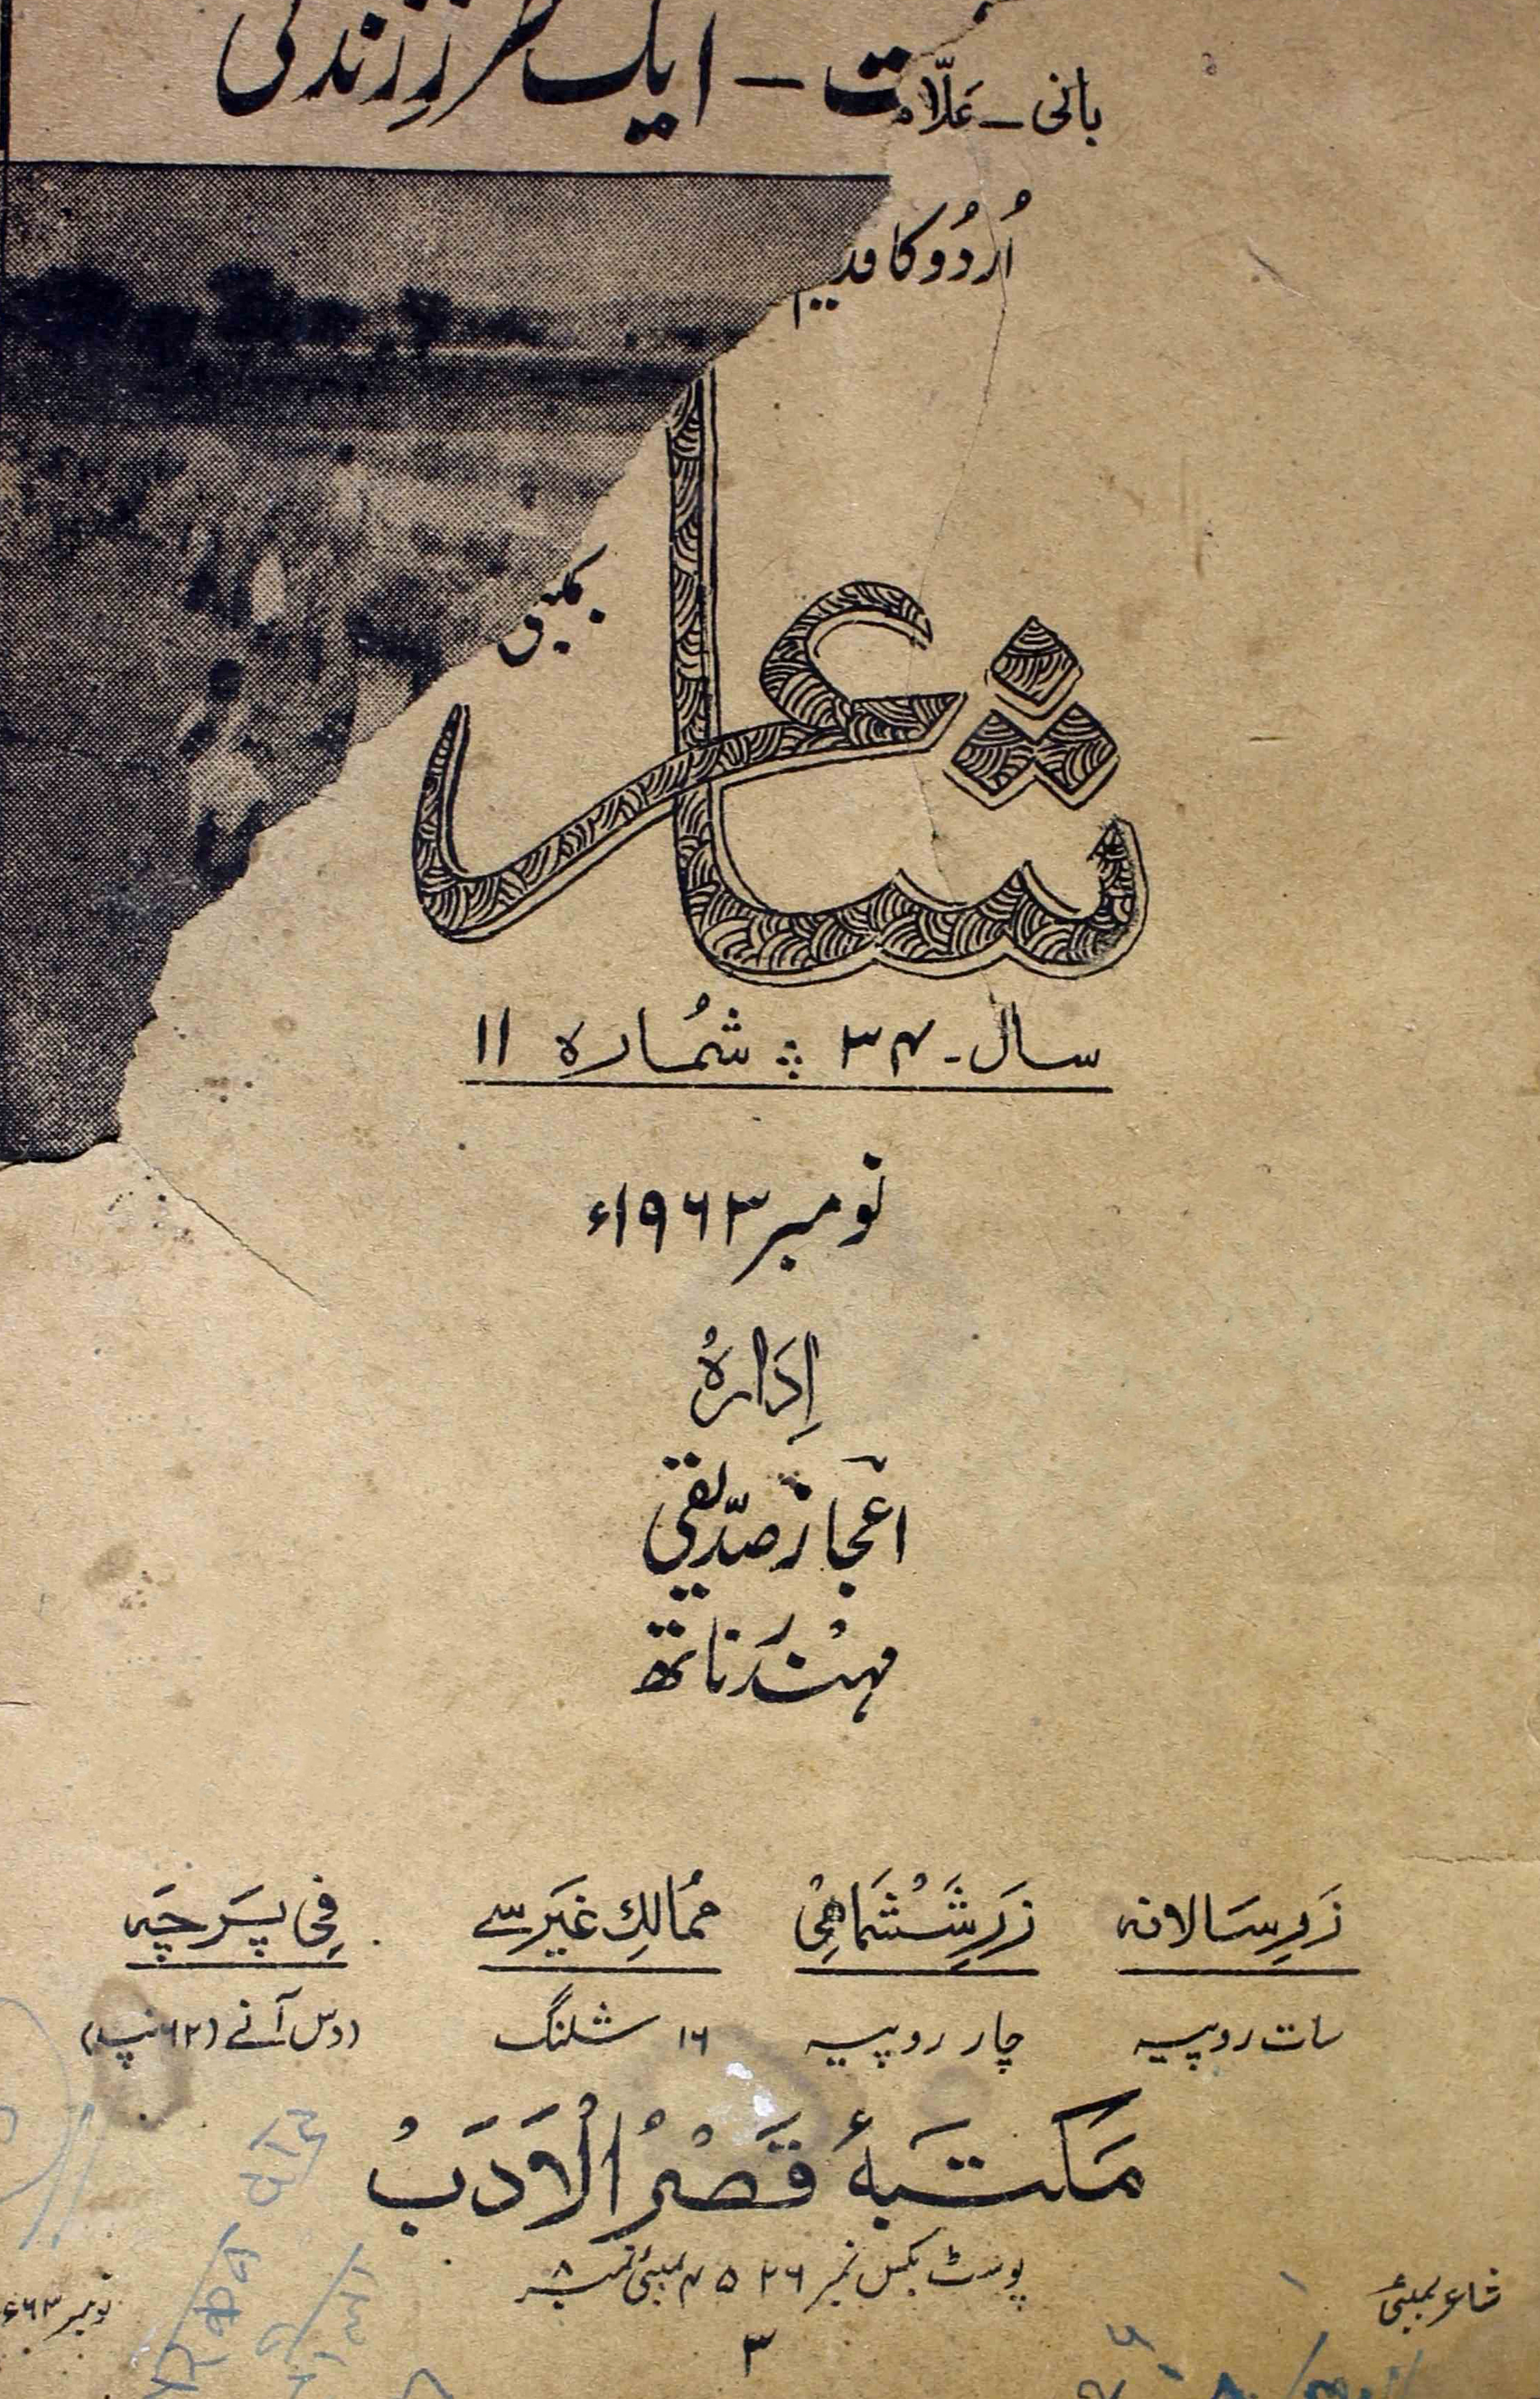 ت - ایک طرزِ زندگی
بانی - علّام
اُردُو کا قدیم
شاعر
بمبئی
سال - ۳۴ ؞ شمُارہ ۱۱
نومبر ۱۹۶۳ء
اِدَارہُ
اعجاز صدّیقی
مہندر ناتھ
زَرِ سَالانہ
زَرِ شَشْمَاہِیْ
ممُالکِ غیَر سے
فِی پَرچَہ
سات روپیہ
چار روپیہ
۱۶ شلنگ
دس آنے (۶۲ نپ)
مَکتبَۂ قَصْرُ الْاَدَبْ
پوسٹ بکس نمبر ۴۵۲۶ بمبئی نمبر ۸
شاعر بمبئی
۳
نومبر ۶۳ء